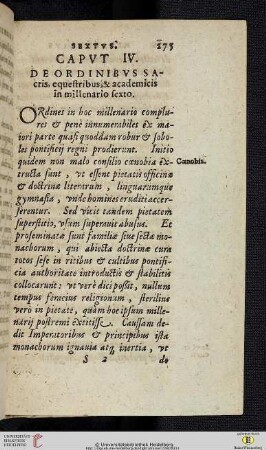 SEXTVS. 275
CAPVT IV.
DE ORDINIBVS SA-
cris, equestribus, & academicis
in millenario sexto.
ORdines in hoc millenario complu-
res & penè innumerabiles ex ma-
iori parte quasi quoddam robur & sobo-
les pontificij regni prodierunt. Initio
quidem non malo consilio cœnobia ex-
Cœnobia.
tructa sunt, vt essent pietatis officinæ
& doctrinæ literarum, linguarumque
gymnasia, vnde homines eruditi accer-
serentur. Sed vicit tandem pietatem
superstitio, vsum superauit abusus. Et
proseminatæ sunt familiæ siue sectæ mo-
nachorum, qui abiecta doctrinæ cura
totos sese in ritibus & cultibus pontifi-
cia authoritate introductis & stabilitis
collocarunt: vt verè dici possit, nullum
tempus feracius religionum, sterilius
verò in pietate, quàm hoc ipsum mille-
narij postremi extitisse. Caussam de-
dit Imperatoribus & principibus ista
monachorum ignauia atq; inertia, vt
S 2 do
UNIVERSITÄTS-
BIBLIOTHEK
HEIDELBERG
© Universitätsbibliothek Heidelberg